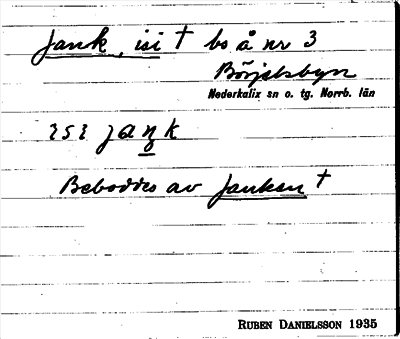 Jank, isi † bo å nr 3
Börjelsbyn
Nederkalix sn o. tg. Norrb. län
ısı jaŋk
Beboddes av Janken †
RUBEN DANIELSSON 1935